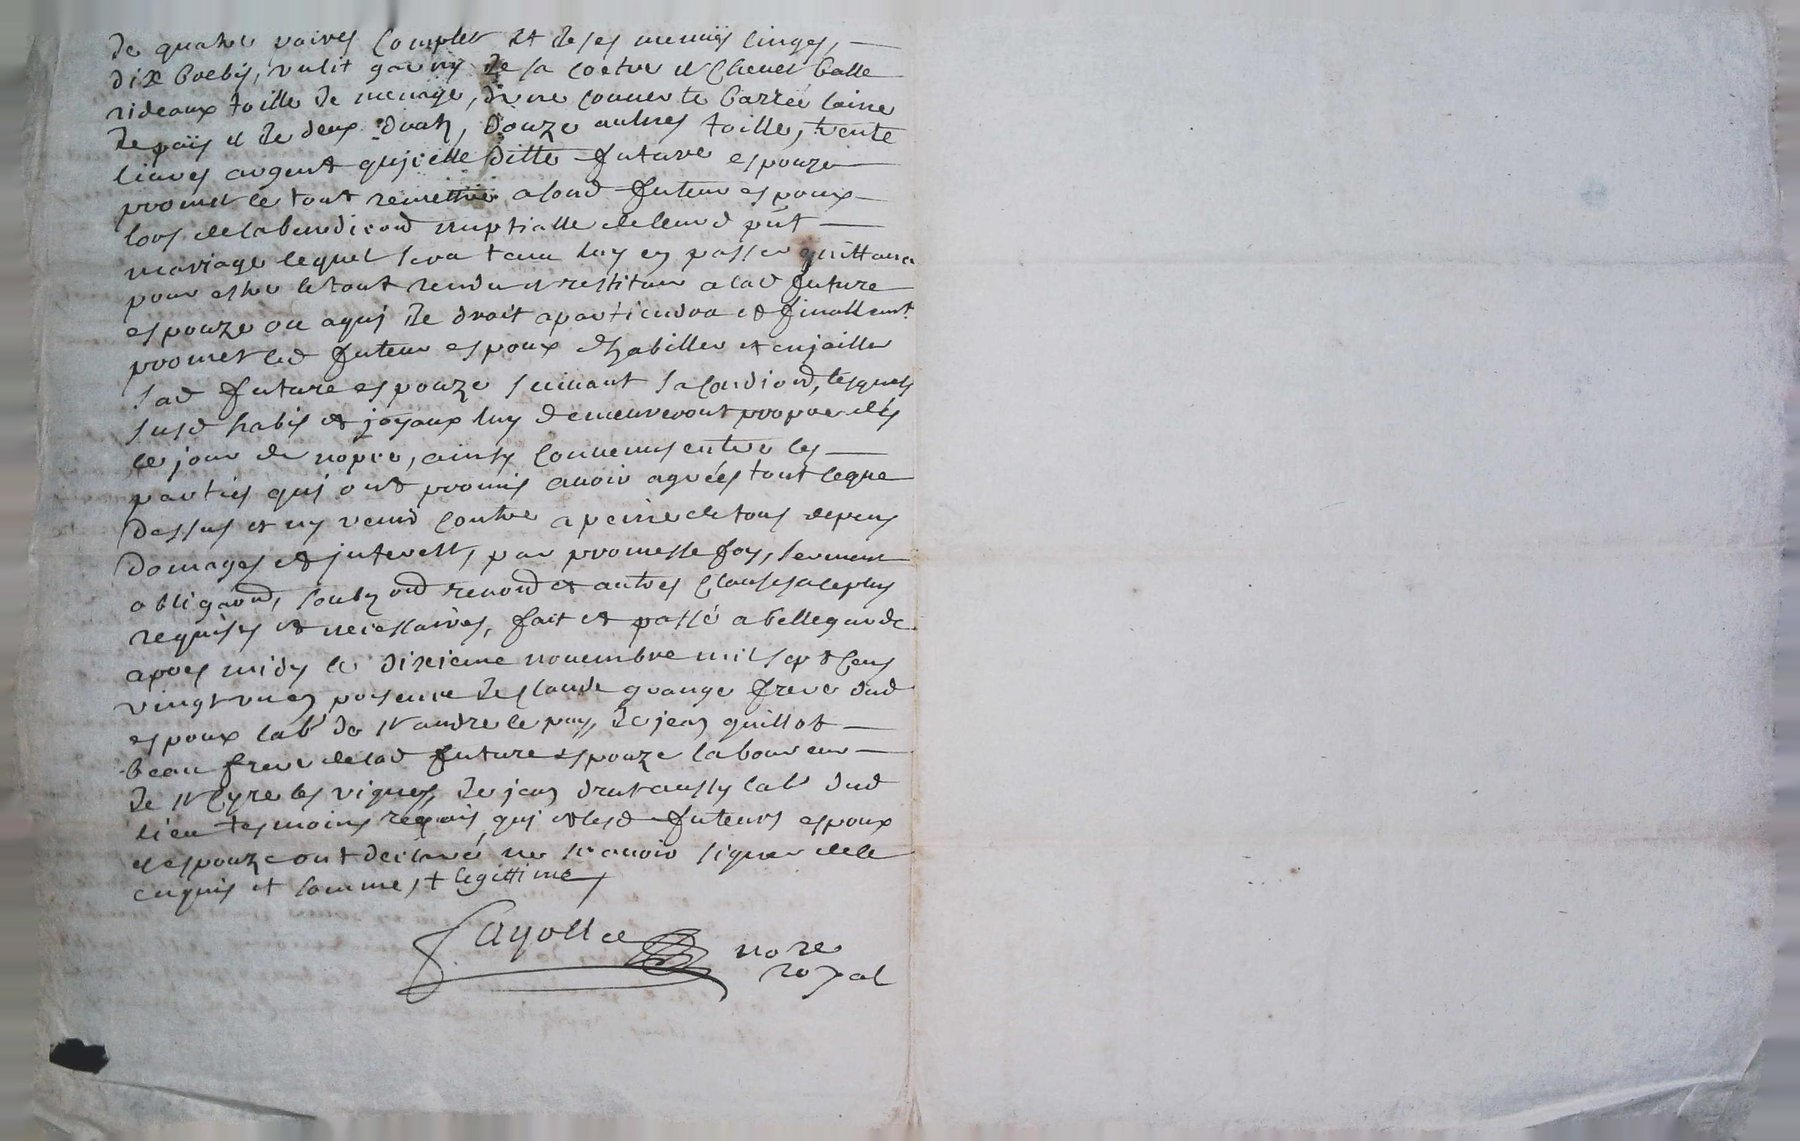 de quatre voires complet et de ses menus linges,
dix brebis, un lit garny de sa coetre et chevet balle
rideaux toille de menage, d'une couverte barrée laine
de païs et de deux draps, douze aulnes toille, trente
livres argent qu'icelle ditte future espouze
promet le tout remettre alond futeur espoux
lors de la benedicond nuptialle de leurd pnt
mariage lequel sera tenu luy en passer quittance
pour estre le tout rendu et restitue a lad future
espouze ou a qui de droit apartiendra et finallemt
promet led futeur espoux d'habiller et enjoiller
sad future espouze suivant sa condiond, lesquels
susd habis et joyaux luy demeureront propre dés
le jour de nopce, ainsy convenus entre les
parties qui ont promis avoir agrées tout ce que
dessus et n'y venir contre a peine de tous depens
domages et interests, par promesse foy, serment
obligaond, soubzond renond et autres clauses a ce plus
requises et necessaires, fait et passé a bellegarde
apres midy le dixieme novembre mil sept cens
vingt un en presence de claude grange frere dud
espoux labr de st andre le puy, de jean guillot
beau frere de lad future espouze laboureur
de st Cyre les vignes, de jean drut aussy labr dud
lieu tesmoins requis qui et lesd futeurs espoux
et espouze ont declaré ne scavoir signer de ce
enquis et somme, + legittime
Fayolle nore
royal